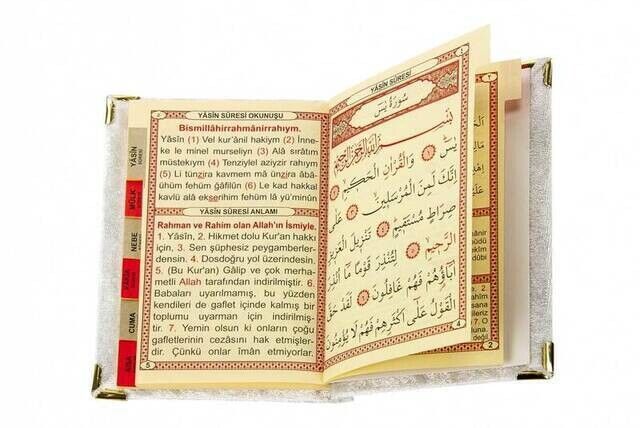 YÂSÎN SÛRESİ OKUNUŞU
Bismillâhirrahmânirrahıym.
Yâsîn (1) Vel kur'ânil hakiym (2) İnne-
ke le minel murseliyn (3) Alâ sıratım
müstekıym (4) Tenziylel aziyzir rahıym
(5) Li tünzira kavmem mâ ünzira âbâ-
ühüm fehüm ğâfilûn (6) Le kad hakkal
kavlü alâ ekserihim fehüm lâ yü'minûn
YÂSÎN SÛRESİ ANLAMI
Rahman ve Rahim olan Allah'ın İsmiyle.
1. Yâsîn, 2. Hikmet dolu Kur'an hakkı
için, 3. Sen şüphesiz peygamberler-
densin. 4. Dosdoğru yol üzerindesin.
5. (Bu Kur'an) Gâlip ve çok merha-
metli Allah tarafından indirilmiştir. 6.
Babaları uyarılmamış, bu yüzden
kendileri de gaflet içinde kalmış bir
toplumu uyarman için indirilmiş-
tir. 7. Yemin olsun ki onların çoğu
gafletlerinin cezasını hak etmişler-
dir. Çünkü onlar îman etmiyorlar.
5
YÂSÎN
MÜLK
NEBE
CUMA
YÂSÎN SÛRESİ
سورة يس
بسم الله الرحمن الرحيم
يس ١ والقرآن الحكيم ٢
انك لمن المرسلين ٣ على
صراط مستقيم ٤ تنزيل العزيز
الرحيم ٥ لتنذر قوما ما انذر
آباؤهم فهم غافلون ٦ لقد حق
القول على اكثرهم فهم لا يؤمنون
4
2